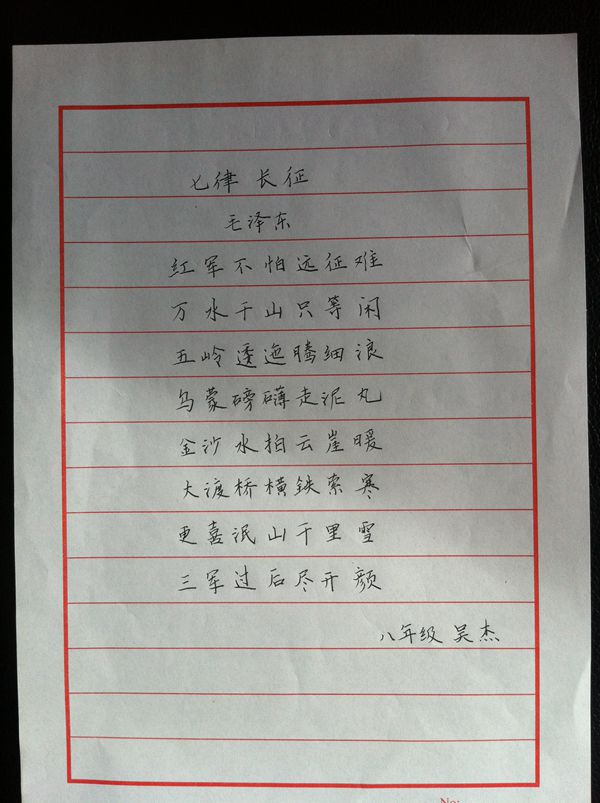 七律 长征
毛泽东
红军不怕远征难
万水千山只等闲
五岭逶迤腾细浪
乌蒙磅礴走泥丸
金沙水柏云崖暖
大渡桥横铁索寒
更喜泯山千里雪
三军过后尽开颜
八年级 吴杰
No: